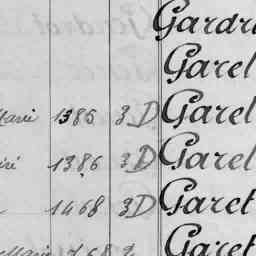 Gardr
Garel
Marie 1385 3D Garel
1386 3D Garel
1468 3D Garet
Garet